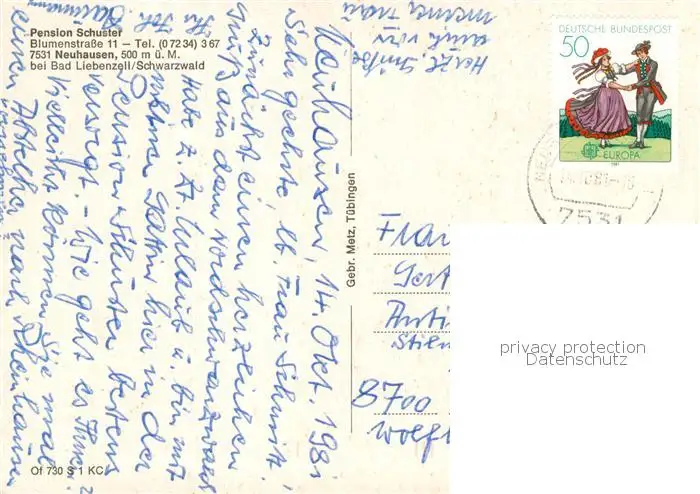 Pension Schuster
Blumenstraße 11 – Tel. (0 72 34) 3 67
7531 Neuhausen, 500 m ü. M.
bei Bad Liebenzell/Schwarzwald
Neuhausen, 14. Okt. 1981
Sehr geehrte, lb. Frau Schmit,
Zunächst einen herzlichen
Gruß aus dem Nordschwarzwald
Habe z. Zt. Urlaub u. bin mit
meiner Gattin hier in der
Pension Schuster bestens
versorgt. – Wie geht es Ihnen?
Vielleicht können Sie mal
einen Abstecher nach Rheinhausen
Ihr Joh.
Herzl. Grüße
auch von
meiner Frau
Gebr. Metz, Tübingen
DEUTSCHE BUNDESPOST
50
EUROPA
1981
7531
Frau
Gert
8700
privacy protection
Datenschutz
Of 730 S 1 KC